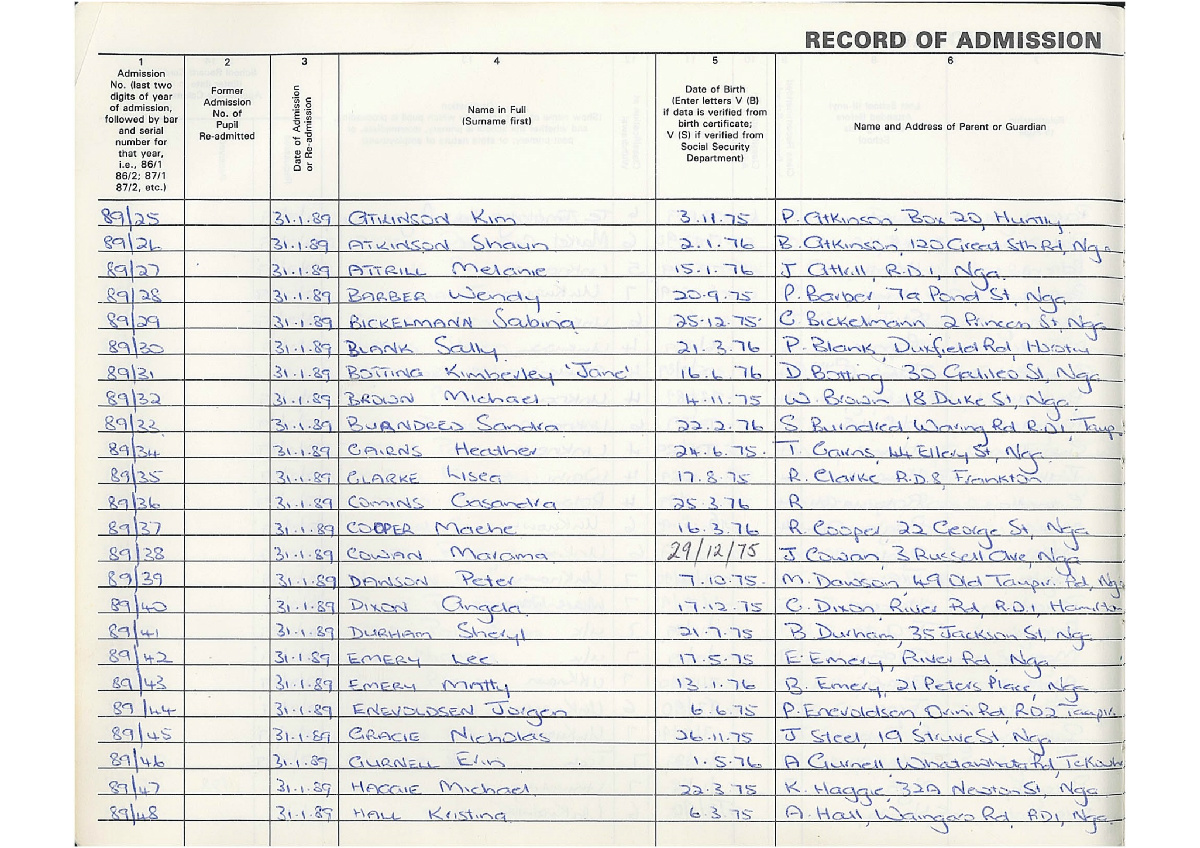 RECORD OF ADMISSION
1 2 3 4 5 6
Admission No. (last two digits of year of admission, followed by bar and serial number for that year, i.e., 86/1 86/2; 87/1 87/2, etc.)
Former Admission No. of Pupil Re-admitted
Date of Admission or Re-admission
Name in Full (Surname first)
Date of Birth (Enter letters V (B) if data is verified from birth certificate; V (S) if verified from Social Security Department)
Name and Address of Parent or Guardian
89/25 31.1.89 ATKINSON Kim 3.11.75 P. Atkinson, Box 20, Huntly
89/26 31.1.89 ATKINSON Shaun 2.1.76 B. Atkinson, 120 Great Sth Rd, Nga
89/27 31.1.89 ATTRILL Melanie 15.1.76 J R.D.1, Nga.
89/28 31.1.89 BARBER Wendy 20.9.75 P. Barber, 7a Pond St, Nga
89/29 31.1.89 BICKELMANN Sabina 25.12.75 C. Bickelmann 2 Princess St, Nga
89/30 31.1.89 BLANK Sally 21.3.76 P. Blank, Duxfield Rd,
89/31 31.1.89 BOTTING Kimberley 'Jane' 16.6.76 D. Botting 30 Galileo St, Nga
89/32 31.1.89 BROWN Michael 4.11.75 W. Brown 18 Duke St, Nga.
89/33 31.1.89 Sandra 22.2.76 S. Waring Rd R.D.1, Taup.
89/34 31.1.89 CAIRNS Heather 24.6.75. T. Cairns, 44 Ellery St, Nga.
89/35 31.1.89 CLARKE Lisea 17.8.75 R. Clarke R.D.8, Frankton
89/36 31.1.89 COMINS Casandra 25.3.76 R
89/37 31.1.89 COOPER 16.3.76 R. Cooper 22 George St, Nga
89/38 31.1.89 COWAN Marama 29/12/75 J. Cowan, 3 Russell Ave, Nga
89/39 31.1.89 DAWSON Peter 7.10.75. M. Dawson, 49 Old Taupiri Rd, Nga
89/40 31.1.89 DIXON Angela 17.12.75 C. Dixon, River Rd, R.D.1, Hamilton
89/41 31.1.89 DURHAM Sheryl 21.7.75 B. Durham, 35 Jackson St, Nga.
89/42 31.1.89 EMERY Lee 17.5.75 E. Emery, River Rd, Nga.
89/43 31.1.89 EMERY Matty 13.1.76 B. Emery, 21 Peters Place, Nga
89/44 31.1.89 ENEVOLDSEN Jorgen 6.6.75 P. Enevoldsen, Orini Rd, RD2 Taupiri.
89/45 31.1.89 GRACIE Nicholas 26.11.75 J Steel, 19 Struve St. Nga
89/46 31.1.89 GURNELL Erin 1.5.76 A Gurnell Whatawhata Rd,
89/47 31.1.89 HAGGIE Michael. 22.3.75 K. Haggie, 32A Newton St, Nga.
89/48 31.1.89 HALL Kristina 6.3.75 A. Hall, Waingaro Rd, RD1, Nga